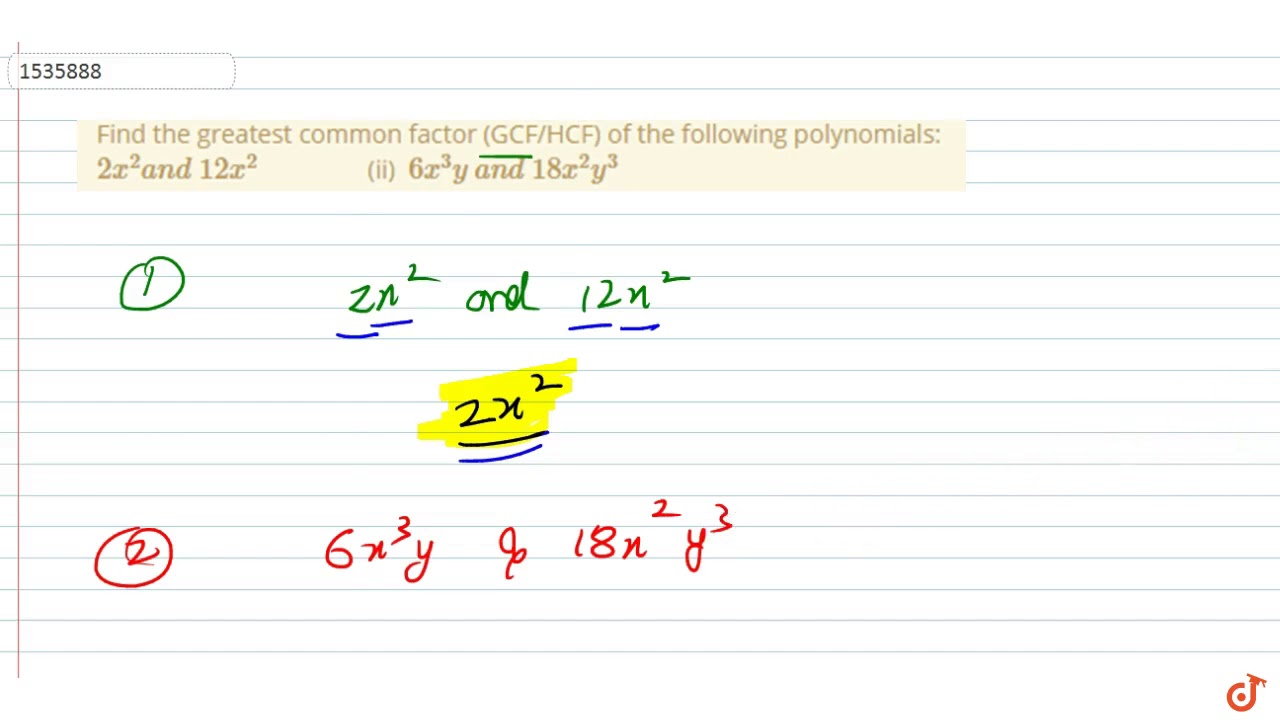 1535888
Find the greatest common factor (GCF/HCF) of the following polynomials:
2x² and 12x² (ii) 6x³y and 18x²y³
1 2x² and 12x²
2x²
2 6x³y & 18x²y³